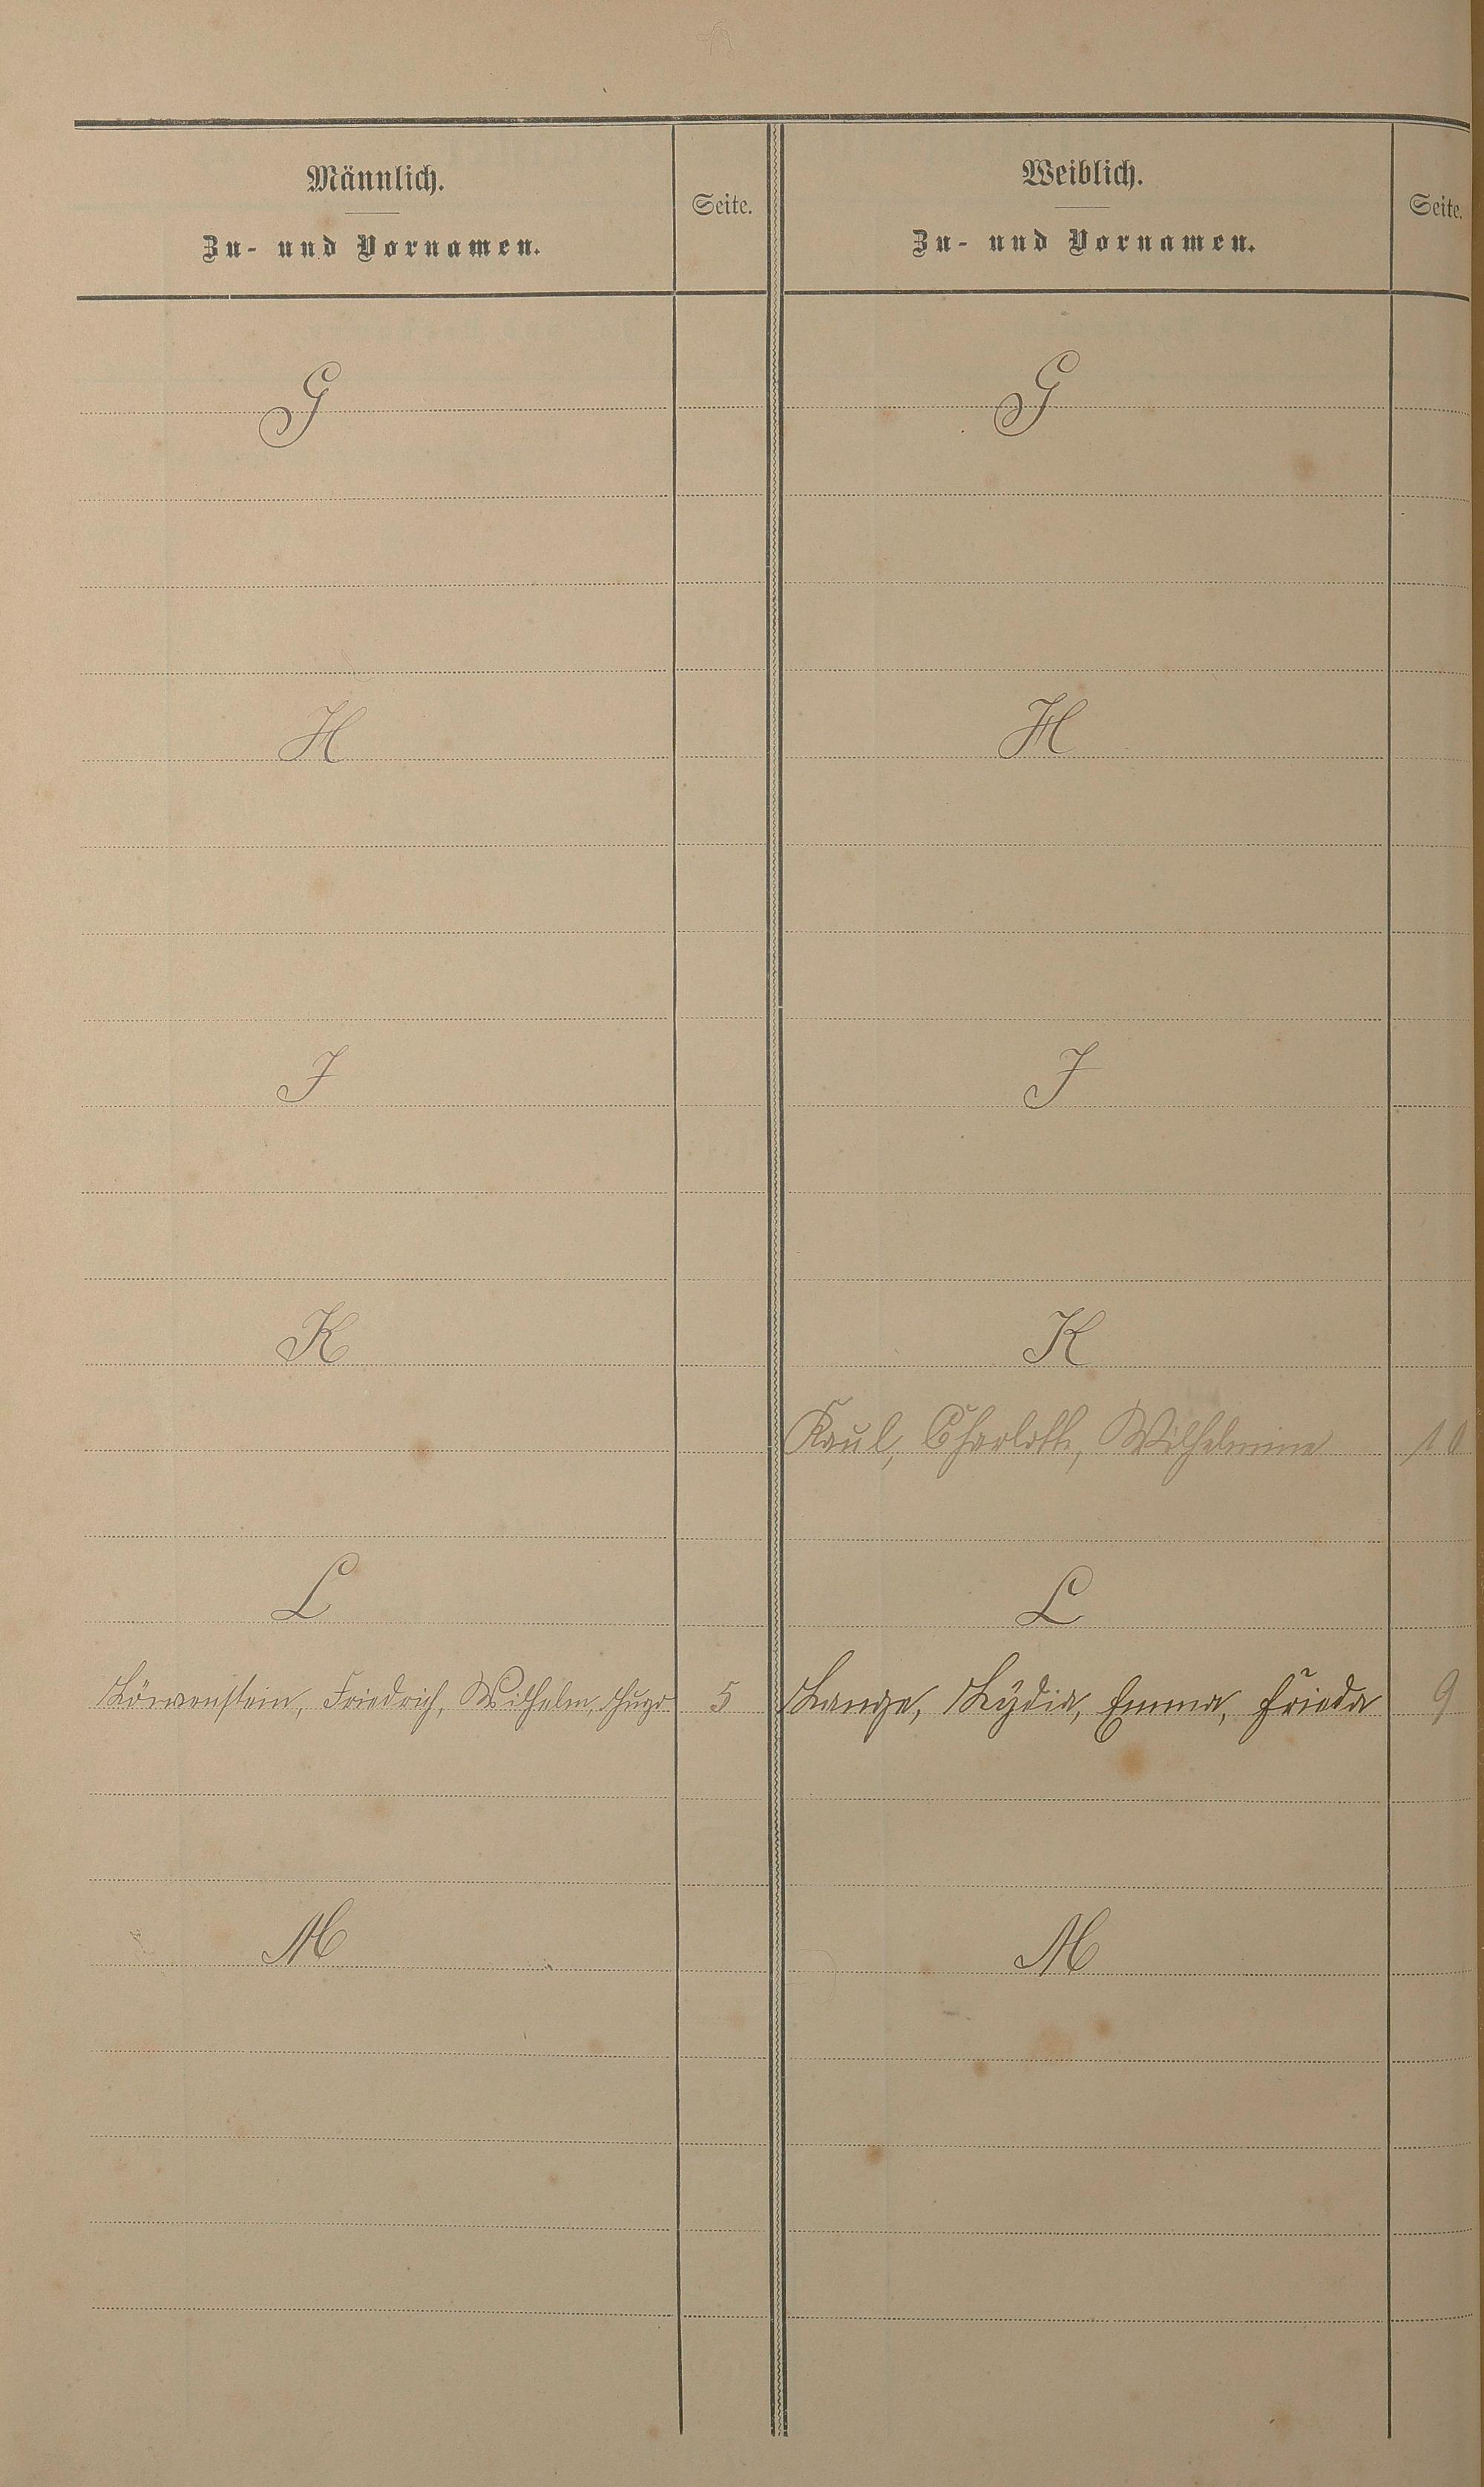 Männlich.
Zu- und Vornamen.
Seite.
Weiblich.
Zu- und Vornamen.
Seite.
G G
H H
J J
K K
Kaul, Charlotte, Wilhelmine 10
L L
Löwenstein, Friedrich, Wilhelm, Hugo 5 Lange, Lydia, Emma, Frieda 9
M M